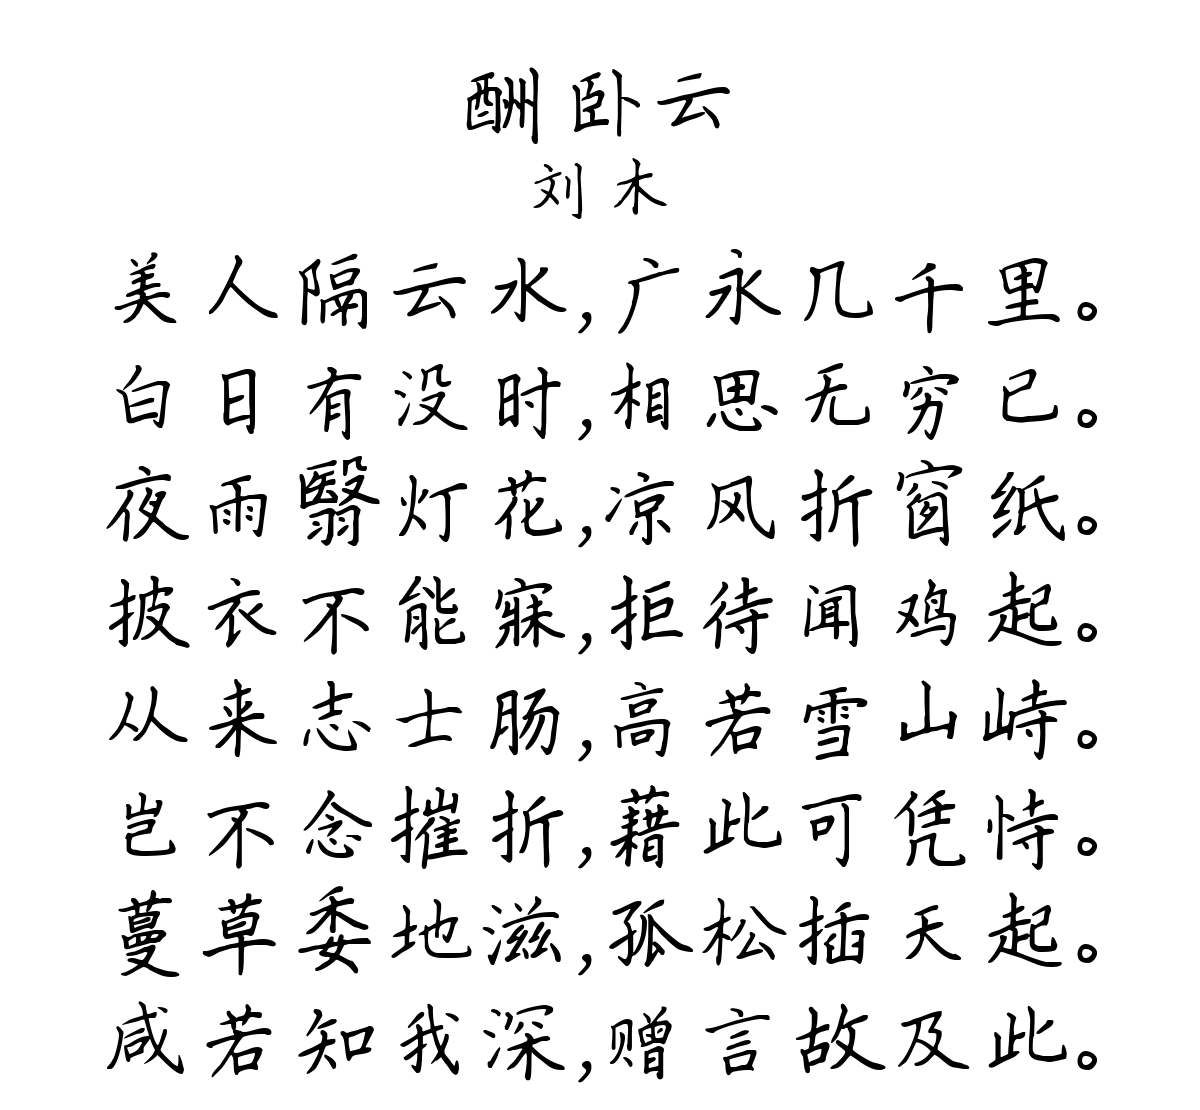 酬卧云
刘木
美人隔云水,广永几千里。
白日有没时,相思无穷已。
夜雨翳灯花,凉风折窗纸。
披衣不能寐,拒待闻鸡起。
从来志士肠,高若雪山峙。
岂不念摧折,藉此可凭恃。
蔓草委地滋,孤松插天起。
咸若知我深,赠言故及此。